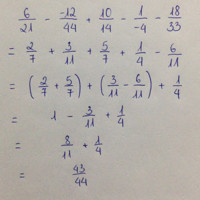 6/21 - -12/44 + 10/14 - 1/-4 - 18/33
= 2/7 + 3/11 + 5/7 + 1/4 - 6/11
= (2/7 + 5/7) + (3/11 - 6/11) + 1/4
= 1 - 3/11 + 1/4
= 8/11 + 1/4
= 43/44